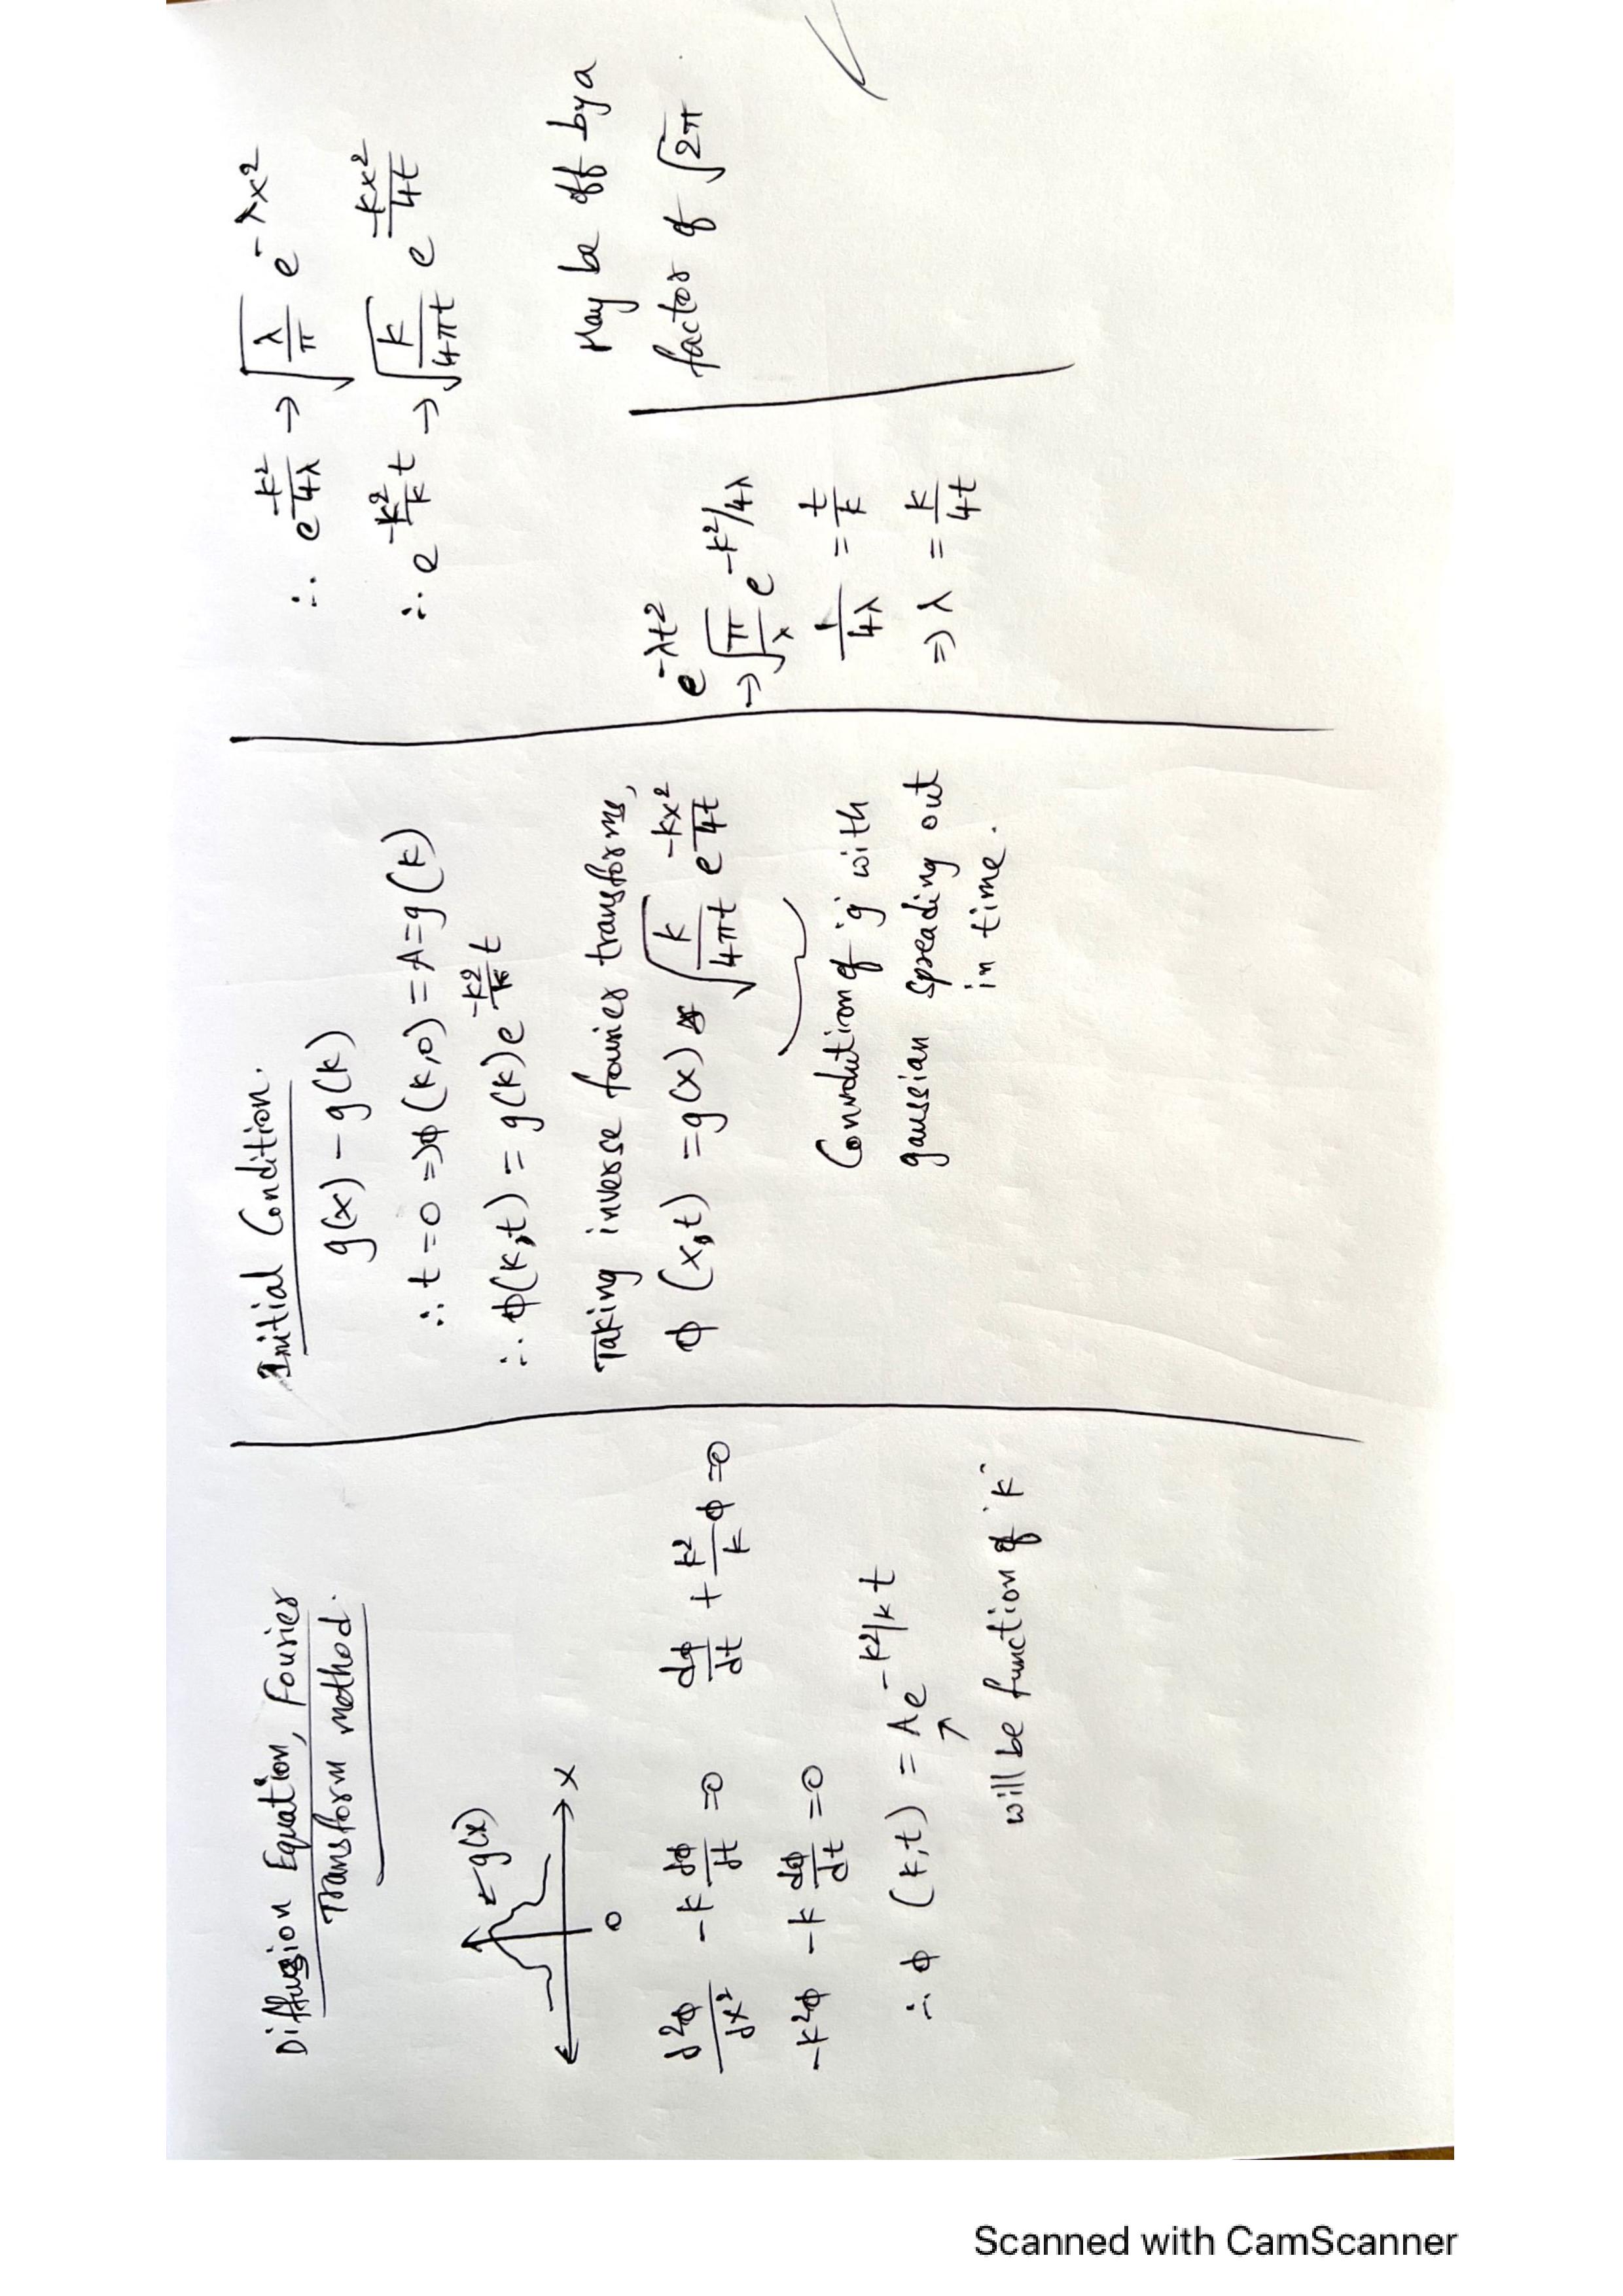 Diffusion Equation, Fourier
Transform method.
←g(x)
x
0
d²φ/dx² - k dφ/dt = 0    dφ/dt + k²/k φ = 0
-k²φ - k dφ/dt = 0
∴ φ (k,t) = A e^{-k²/k t}
↑
will be function of 'k'
Initial Condition.
g(x) - g(k)
∴ t = 0 ⇒ φ(k,0) = A = g(k)
∴ φ(k,t) = g(k) e^{-k²/k t}
Taking inverse fourier transforms,
φ (x,t) = g(x) * √(k/4πt) e^{-kx²/4t}
Convolution of 'g' with
gaussian spreading out
in time.
∴ e^{-k²/4λ} → √(λ/π) e^{-λx²}
∴ e^{-k²/k t} → √(k/4πt) e^{-kx²/4t}
e^{-λt²}
→ √(π/λ) e^{-k²/4λ}
1/4λ = t/k
⇒ λ = k/4t
May be off by a
factor of √2π
Scanned with CamScanner